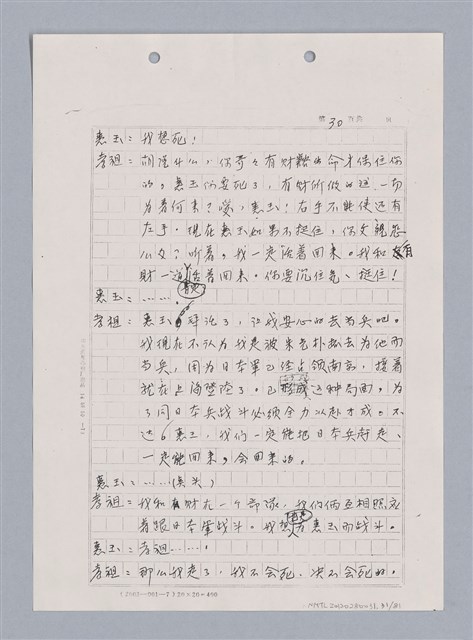 第 30 頁共 頁
惠玉：我想死！
孝祖：胡涂什么，你哥々有财赌命才保住你
的。惠玉你要死了，有财所做的这一切
为着何来？嗳，惠玉！右手不能使还有
左手。现在惠玉如果不挺住，你父親怎
么父？听着，我一定活着回来。我和有
财一道活着回来。你要沉住气、挺住！
惠玉：……
孝祖：惠玉，别说了，让我安心的去当兵吧。
我现在不认为我是被来充朴松去为他而
当兵，因为日本軍已经占领南京，接着
就在上海登陸了。已形成这种局面，为
了同日本兵战斗必须全力以赴才成。不
过，惠玉，我们一定能把日本兵赶走、
一定能回来，会回来的。
惠玉：……（点头）
孝祖：我和有财在一个部隊，我们俩互相照应
着跟日本軍战斗。我想为惠玉而战斗。
惠玉：孝祖……。
孝祖：那么我走了，我不会死，决不会死的。
20×20=400